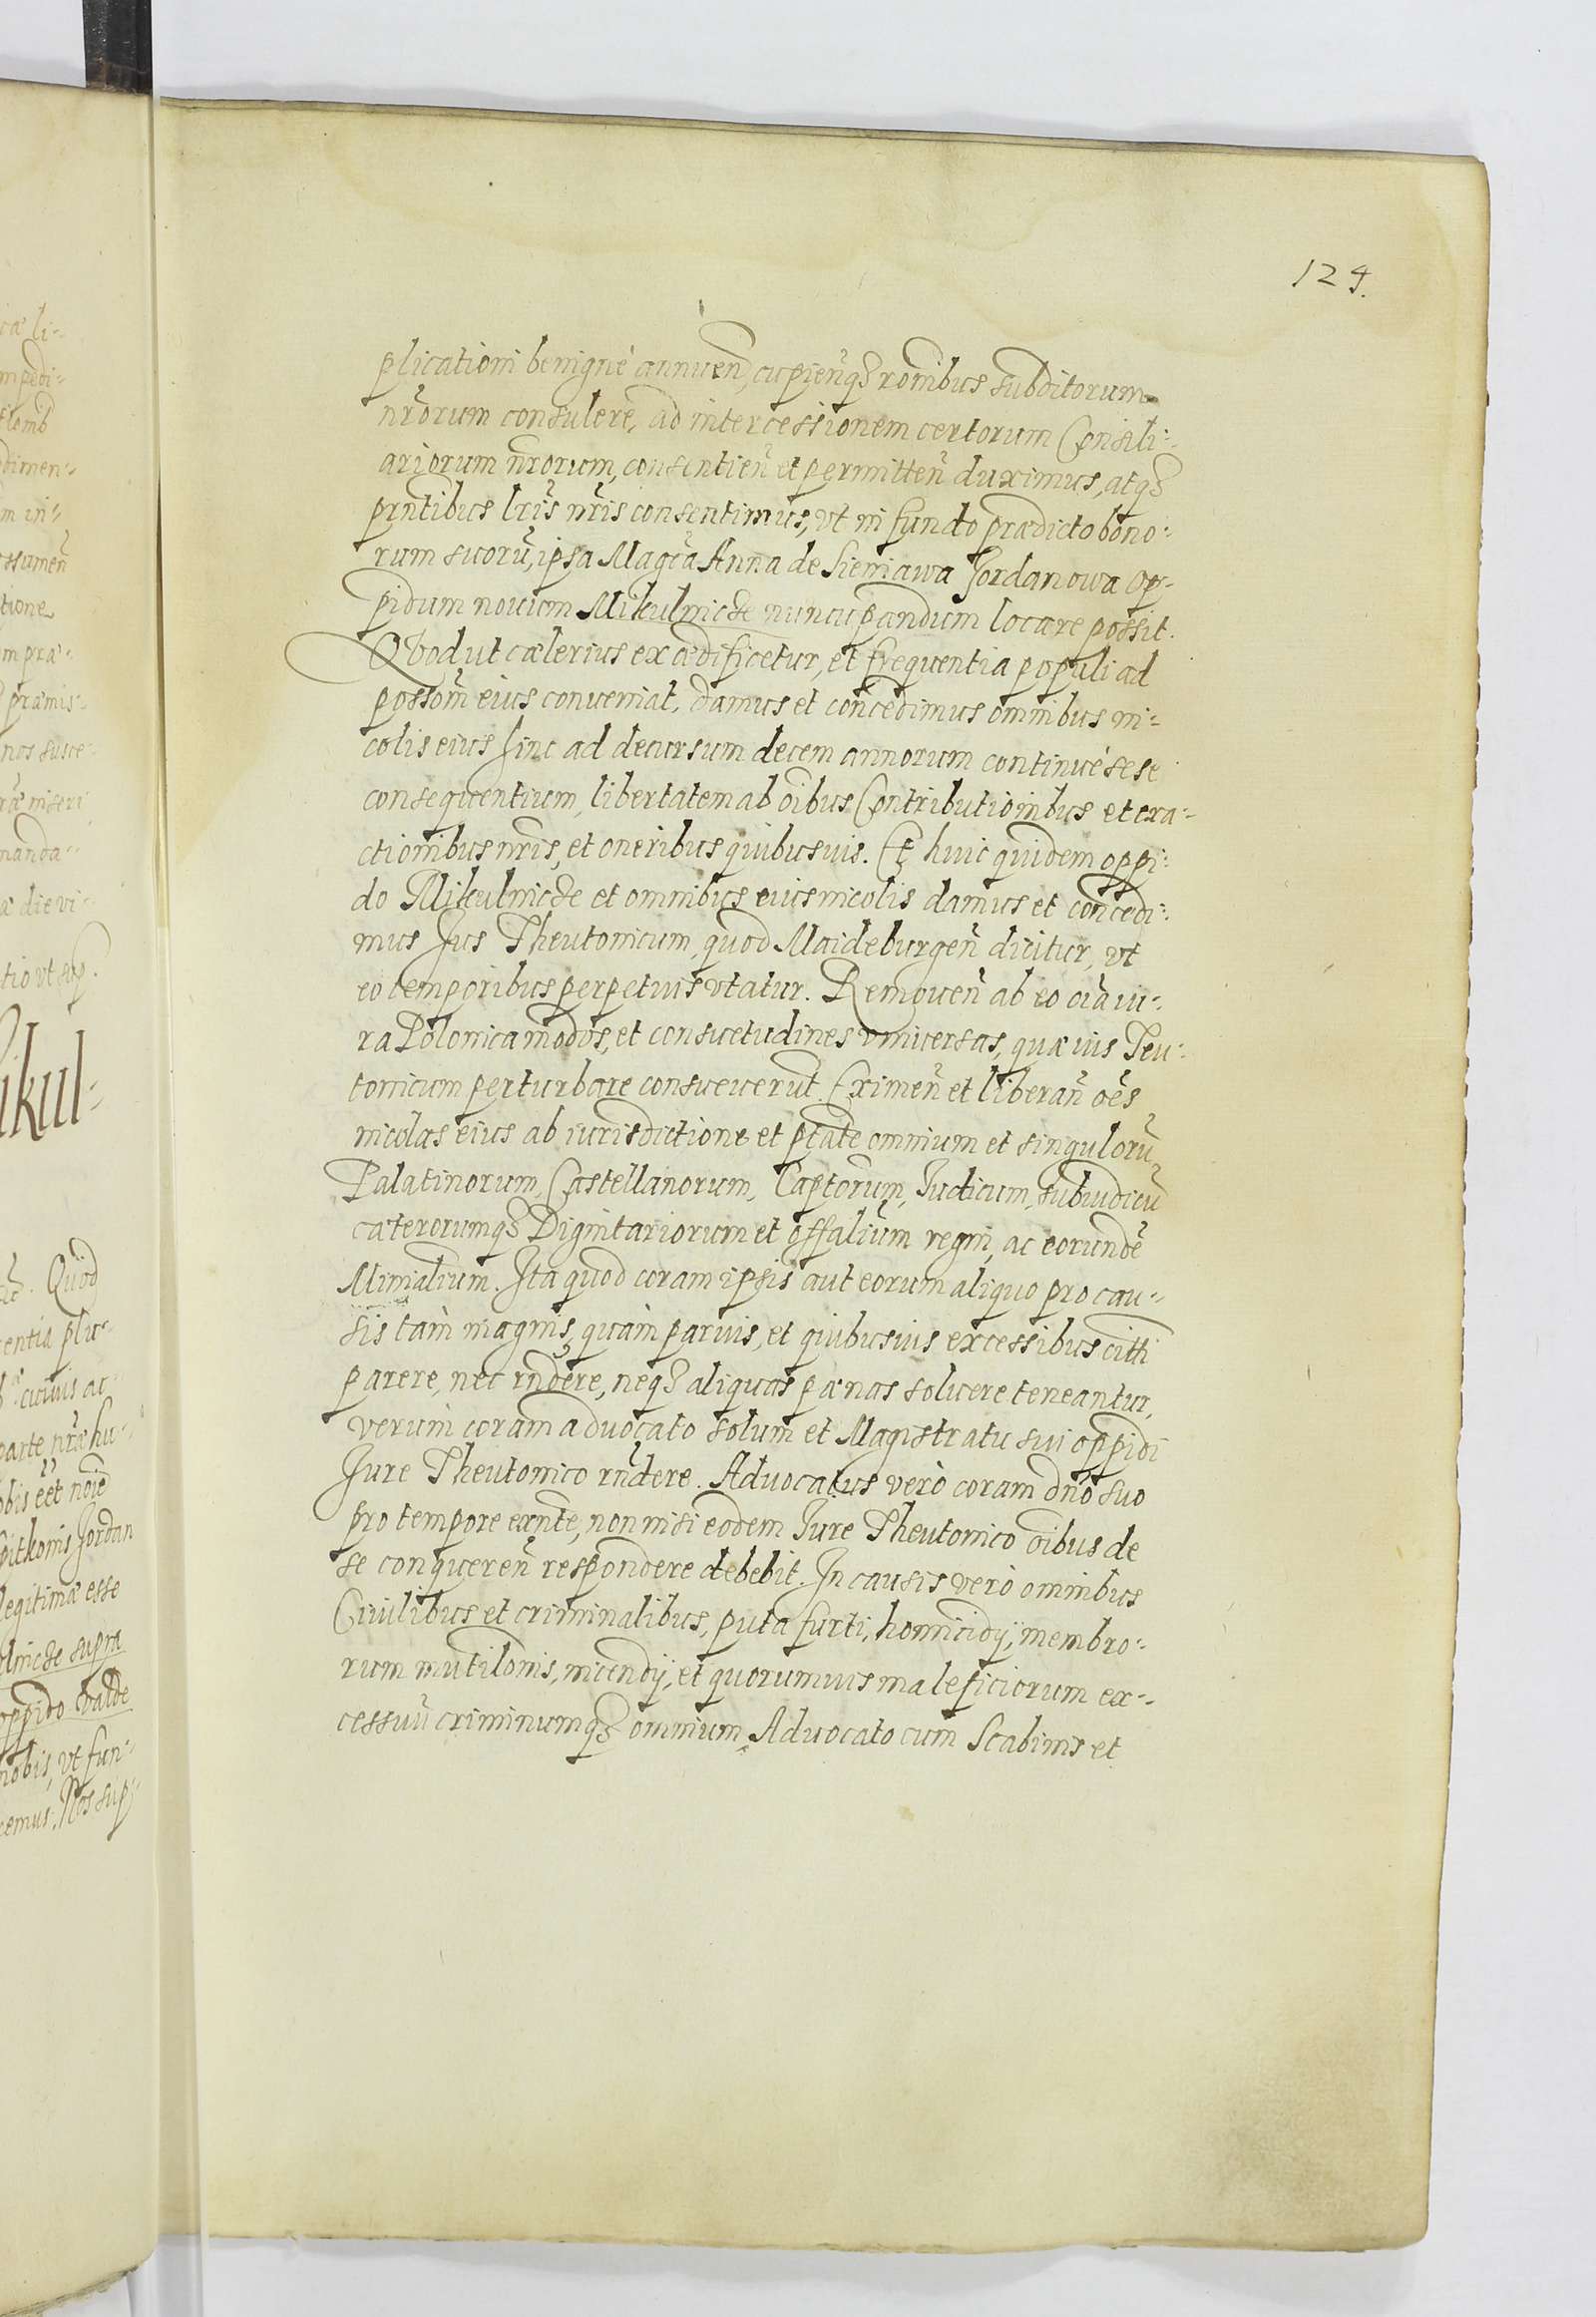 124.
plicationi benignè annuen̄, cupien̄q3 rōnibus subditorum
nr̄orum consulere, ad intercessionem certorum Consili-
ariorum nr̄orum, consentien̄ et permitten̄ duximus, atq3
prn̄tibus lr̄is nr̄is consentimus, vt in fundo prædicto bono-
rum suorū, ipsa Magc̄a Anna de Sieniawa Jordanowa op-
pidum nouum Mikulincze nuncupandum locare possit.
Qvod ut cælerius exædificetur, et frequentia populi ad
possōm eius conueniat, damus et concedimus omnibus in-
colis eius hinc ad decursum decem annorum continuè sese
consequentium, libertatem ab oībus Contributionibus et exa-
ctionibus nr̄is, et oneribus quibusuis. Et huic quidem oppi-
do Mikulincze et omnibus eius incolis damus et concedi-
mus Jus Theutonicum, quod Maideburgen̄ dicitur, vt
eo temporibus perpetuis vtatur. Remouen̄ ab eo oīa iu-
ra Polonica modos, et consuetudines vniuersas, quæ ius Teu-
tonicum perturbare consueuerūt. Eximen̄ et liberan̄ oēs
incolas eius ab iurisdictione et ptāte omnium et singulorū
Palatinorum, Castellanorum, Captorum, Judicum, subiudicū
cæterorumq3 Dignitariorum et offalium regni, ac eorundē
Minialium. Ita quod coram ipsis aut eorum aliquo pro cau-
sis tàm magnis, quàm paruis, et quibusuis excessibus citti
parere, nec rn̄dere, neq3 aliquas pænas soluere teneantur,
verùm coram aduocato solum et Magistratu sui oppidi
Jure Theutonico rn̄dere. Aduocatus verò coram dn̄o suo
pro tempore exn̄te, non nisi eodem Jure Theutonico oībus de
se conqueren̄ respondere debebit. In causis verò omnibus
Ciuilibus et criminalibus, puta furti, homicidij, membro-
rum mutilōnis, incendij, et quorumuis maleficiorum ex-
cessuū criminumq3 omnium, Aduocato cum Scabinis et